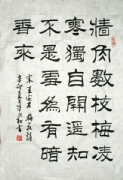 牆角數枝梅凌
寒獨自開遥知
不是雪為有暗
香來
宋王安石梅花詩
辛卯